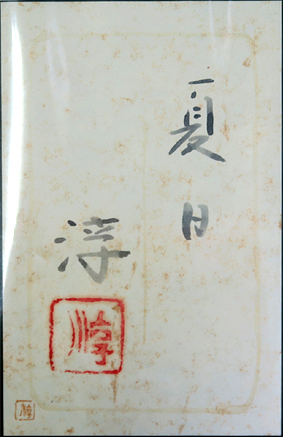 夏日
淳
淳